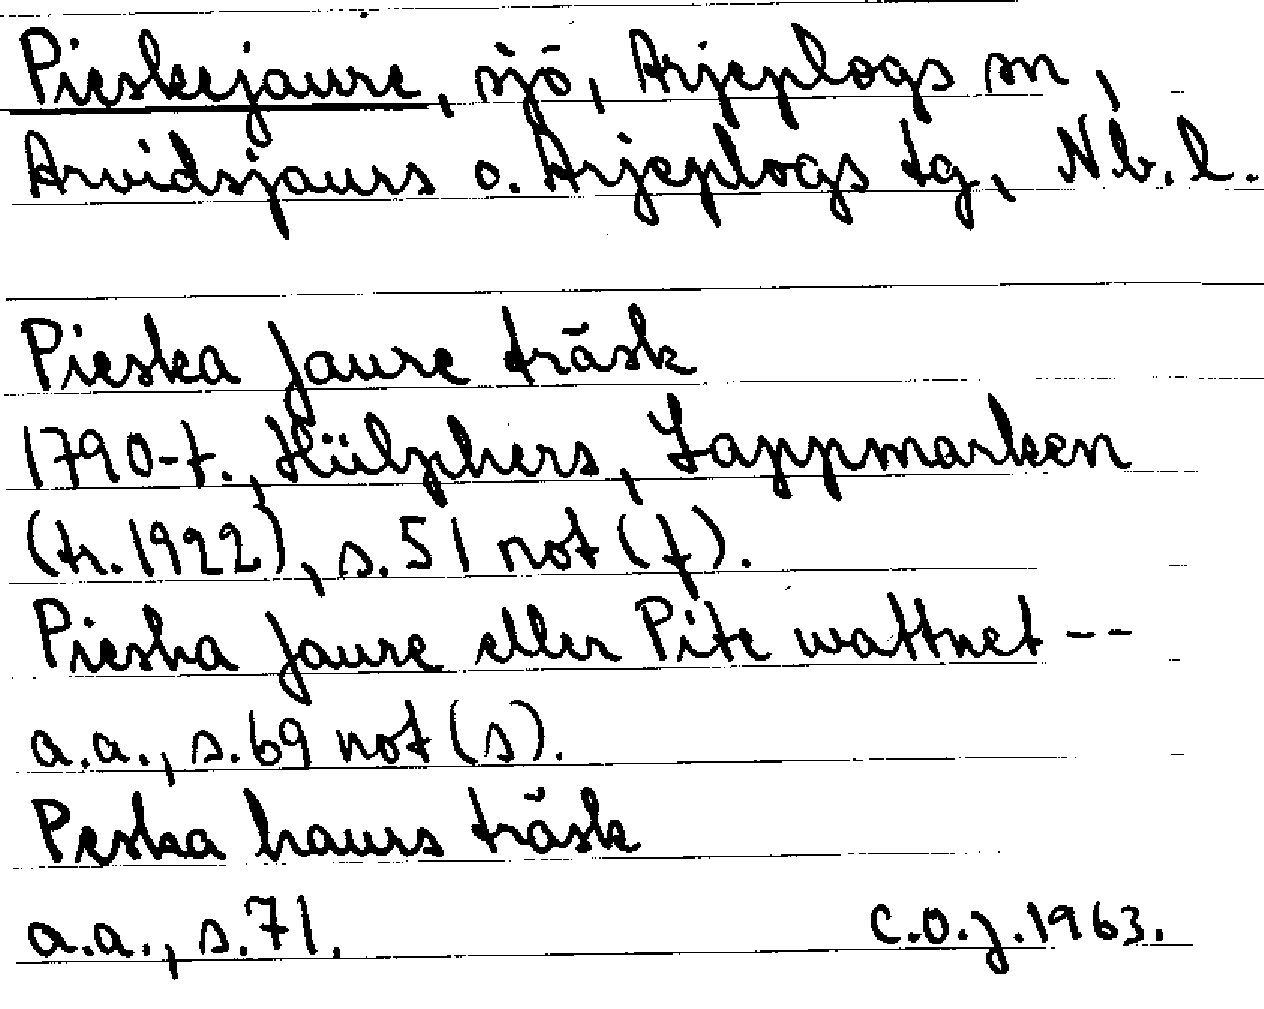 Pieskejaure, sjö, Arjeplogs sn,
Arvidsjaurs o. Arjeplogs tg, Nb.l.
Pieska Jaure träsk
1790-t., Hülphers, Lappmarken
(tr. 1922), s. 51 not (f).
Pieska Jaure eller Pite wattnet --
a.a., s. 69 not (s).
Peska haurs träsk
a.a., s. 71. C.O.J. 1963.